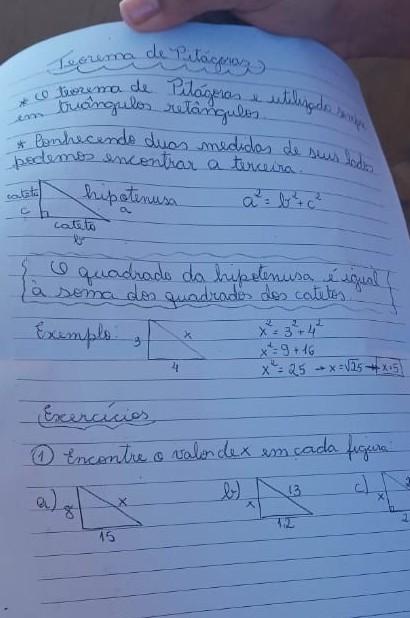 Teorema de Pitágoras
* O teorema de Pitágoras e utilizado
em triângulos retângulos.
* Conhecendo duas medidas de seus lados
podemos encontrar a terceira.
cateto
c
hipotenusa
a
cateto
b
a² = b² + c²
O quadrado da hipotenusa é igual
à soma dos quadrados dos catetos.
Exemplo:
3
x
4
x² = 3² + 4²
x² = 9 + 16
x² = 25 → x = √25 → x = 5
Exercícios
① Encontre o valor de x em cada figura:
a) 8 x
15
b) x 13
12
c) x